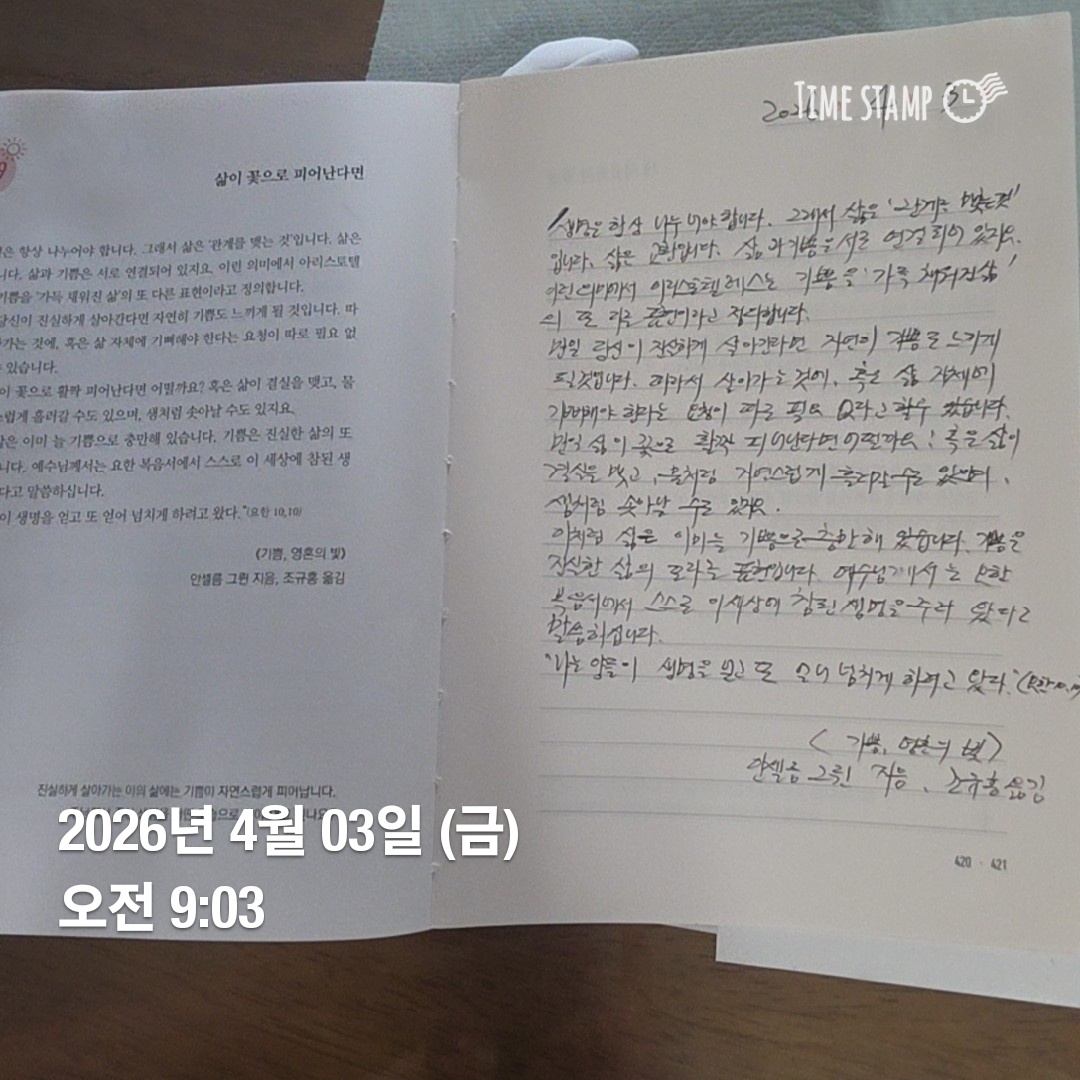 9
삶이 꽃으로 피어난다면
은 항상 나누어야 합니다. 그래서 삶은 '관계를 맺는 것'입니다. 삶은
니다. 삶과 기쁨은 서로 연결되어 있지요. 이런 의미에서 아리스토텔
기쁨을 '가득 채워진 삶'의 또 다른 표현이라고 정의합니다.
당신이 진실하게 살아간다면 자연히 기쁨도 느끼게 될 것입니다. 따
가는 것에, 혹은 삶 자체에 기뻐해야 한다는 요청이 따로 필요 없
있습니다.
이 꽃으로 활짝 피어난다면 어떨까요? 혹은 삶이 결실을 맺고, 물
스럽게 흘러갈 수도 있으며, 샘처럼 솟아날 수도 있지요.
은 이미 늘 기쁨으로 충만해 있습니다. 기쁨은 진실한 삶의 또
니다. 예수님께서는 요한 복음서에서 스스로 이 세상에 참된 생
다고 말씀하십니다.
이 생명을 얻고 또 얻어 넘치게 하려고 왔다."(요한 10,10)
《기쁨, 영혼의 빛》
안셀름 그륀 지음, 조규홍 옮김
진실하게 살아가는 이의 삶에는 기쁨이 자연스럽게 피어납니다.
TIME STAMP
2026 4 3
생명은 항상 나누어야 합니다. 그래서 삶은 '관계를 맺는것'
입니다. 삶은 교환입니다. 삶과 기쁨은 서로 연결되어 있지요.
이런 의미에서 아리스토텔레스는 기쁨을 '가득 채워진 삶'
의 또 다른 표현이라고 정의합니다.
만일 당신이 진실하게 살아간다면 자연히 기쁨도 느끼게
될것입니다. 따라서 살아가는 것에, 혹은 삶 자체에
기뻐해야 한다는 요청이 따로 필요 없다고 할수 있습니다.
만일 삶이 꽃으로 활짝 피어난다면 어떨까요? 혹은 삶이
결실을 맺고, 물처럼 자연스럽게 흘러갈 수도 있으며,
샘처럼 솟아날 수도 있지요.
이처럼 삶은 이미 늘 기쁨으로 충만해 있습니다. 기쁨은
진실한 삶의 또다른 표현입니다. 예수님께서는 요한
복음서에서 스스로 이세상에 참된 생명을 주러 왔다고
말씀하십니다.
"나는 양들이 생명을 얻고 또 얻어 넘치게 하려고 왔다."(요한 10.10)
〈기쁨, 영혼의 빛〉
안셀름 그륀 지음, 조규홍 옮김
420 · 421
2026년 4월 03일 (금)
오전 9:03